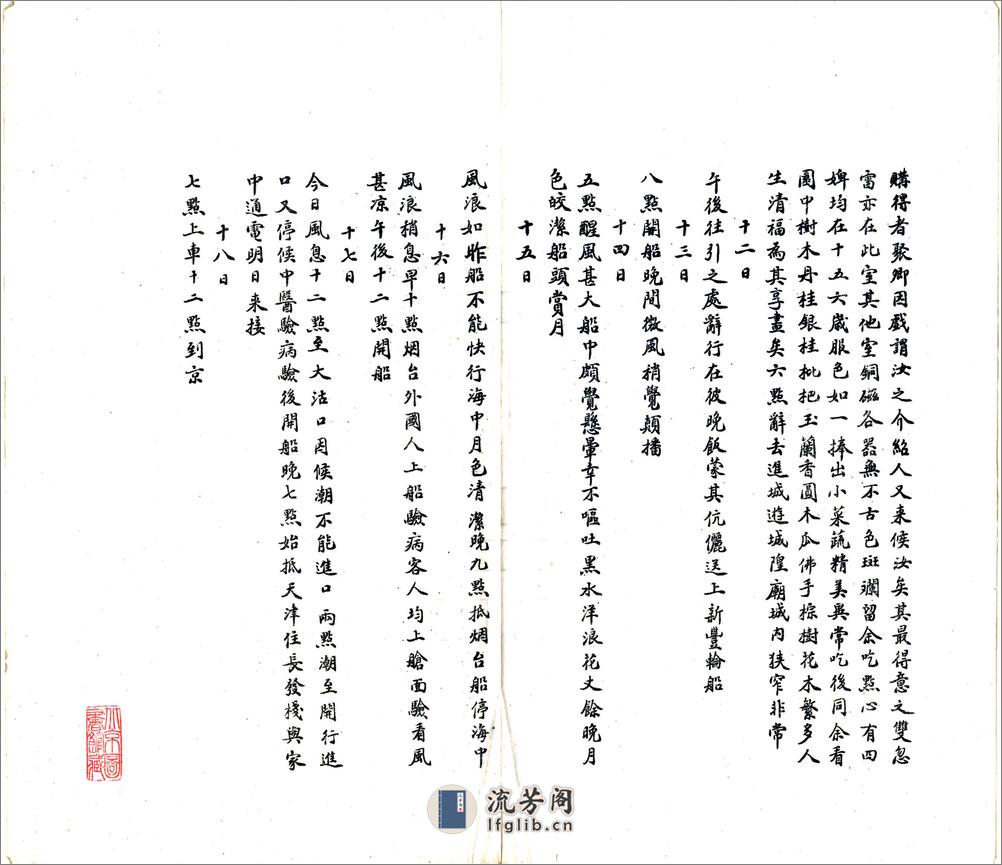 購得者聚卿因戲謂汝之介紹人又来候汝矣其最得意之雙忽
雷亦在此室其他室銅磁各器無不古色斑斕留余吃點心有四
婢均在十五六歲服色如一捧出小菜蔬精美異常吃後同余看
園中樹木丹桂銀桂枇杷玉蘭香圓木瓜佛手棕樹花木繁多人
生清福為其享盡矣六點辭去進城遊城隍廟城内狹窄非常
十二日
午後往引之處辭行在彼晚飯蒙其伉儷送上新豐輪船
十三日
八點開船晚間微風稍覺顛播
十四日
五點醒風甚大船中頗覺懸暈幸不嘔吐黑水洋浪花丈餘晚月
色皎潔船頭賞月
十五日
風浪如昨船不能快行海中月色清潔晚九點抵烟台船停海中
十六日
風浪稍息早十點烟台外國人上船驗病客人均上艙面驗看風
甚凉午後十二點開船
十七日
今日風息十二點至大沽口因候潮不能進口兩點潮至開行進
口又停候中醫驗病驗後開船晚七點始抵天津住長發棧與家
中通電明日来接
十八日
七點上車十二點到京
北京圖
書館藏
流芳阁
lfglib.cn